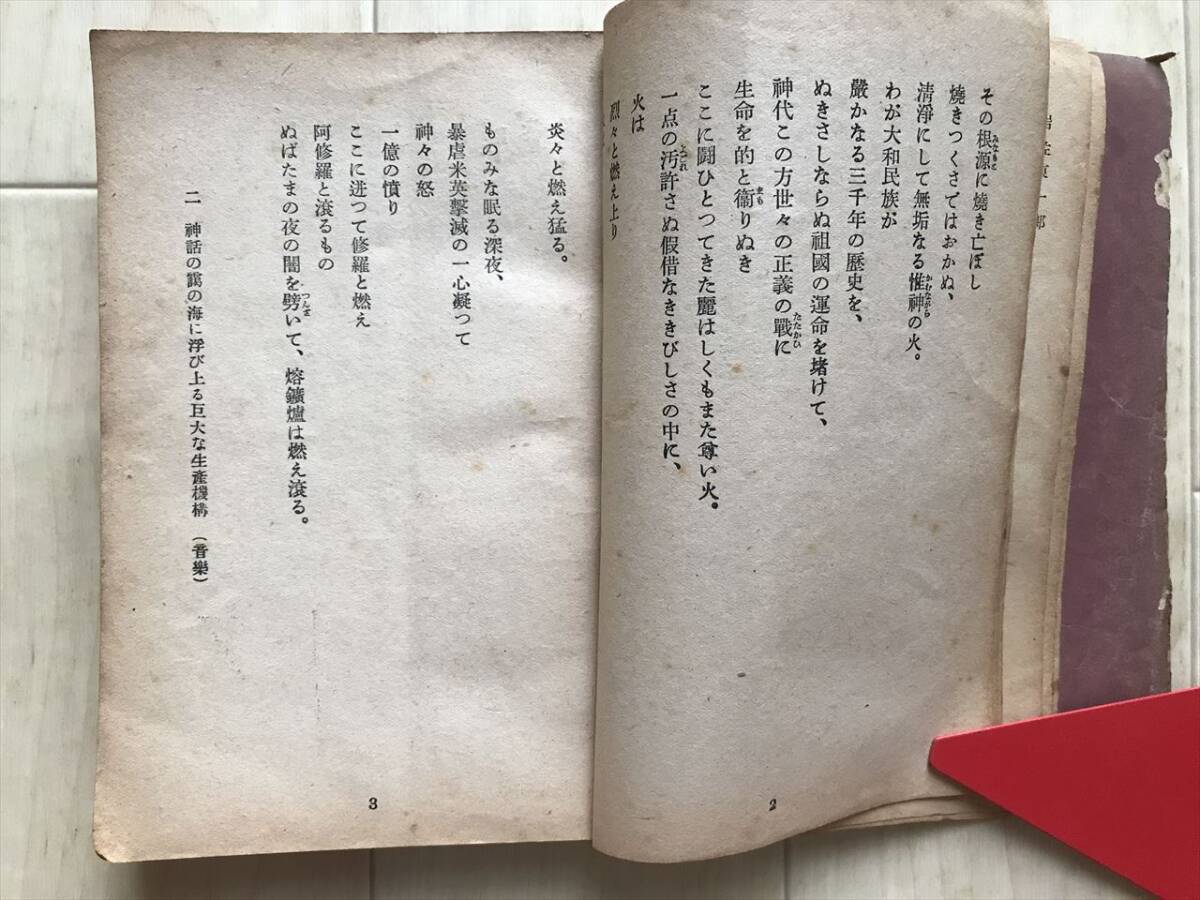 その根源に燒き亡ぼし
みなもと
燒きつくさではおかぬ、
清淨にして無垢なる惟神の火。
かむながら
わが大和民族が
嚴かなる三千年の歷史を、
ぬきさしならぬ祖國の運命を堵けて、
神代この方世々の正義の戰に
たたかひ
生命を的と衞りぬき
まも
ここに鬪ひとつてきた麗はしくもまた尊い火。
一点の汚許さぬ假借なききびしさの中に、
けがれ
火は
烈々と燃え上り
2
炎々と燃え猛る。
ものみな眠る深夜、
暴虐米英擊滅の一心凝つて
神々の怒
一億の憤り
ここに迸つて修羅と燃え
阿修羅と滾るもの
ぬばたまの夜の闇を劈いて、熔鑛爐は燃え滾る。
つんざ
二 神話の靄の海に浮び上る巨大な生產機構 (音樂)
3
一郎